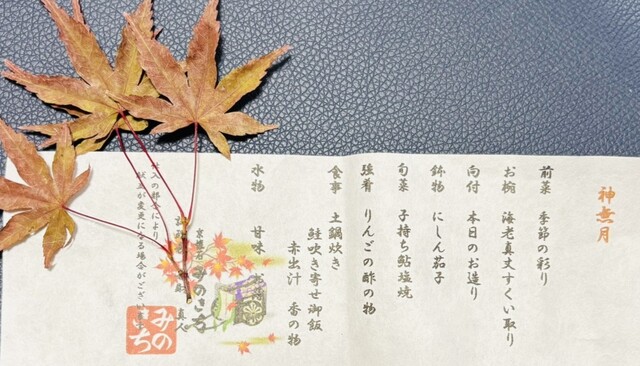 神無月
前菜 季節の彩り
お椀 海老真丈すくい取り
向付 本日のお造り
鉢物 にしん茄子
旬菜 子持ち鮎塩焼
強肴 りんごの酢の物
食事 土鍋炊き
鮭吹き寄せ御飯
赤出汁 香の物
水物 甘味
みのきち
仕入の都合により
献立が変更になる場合がござい
みの
きち